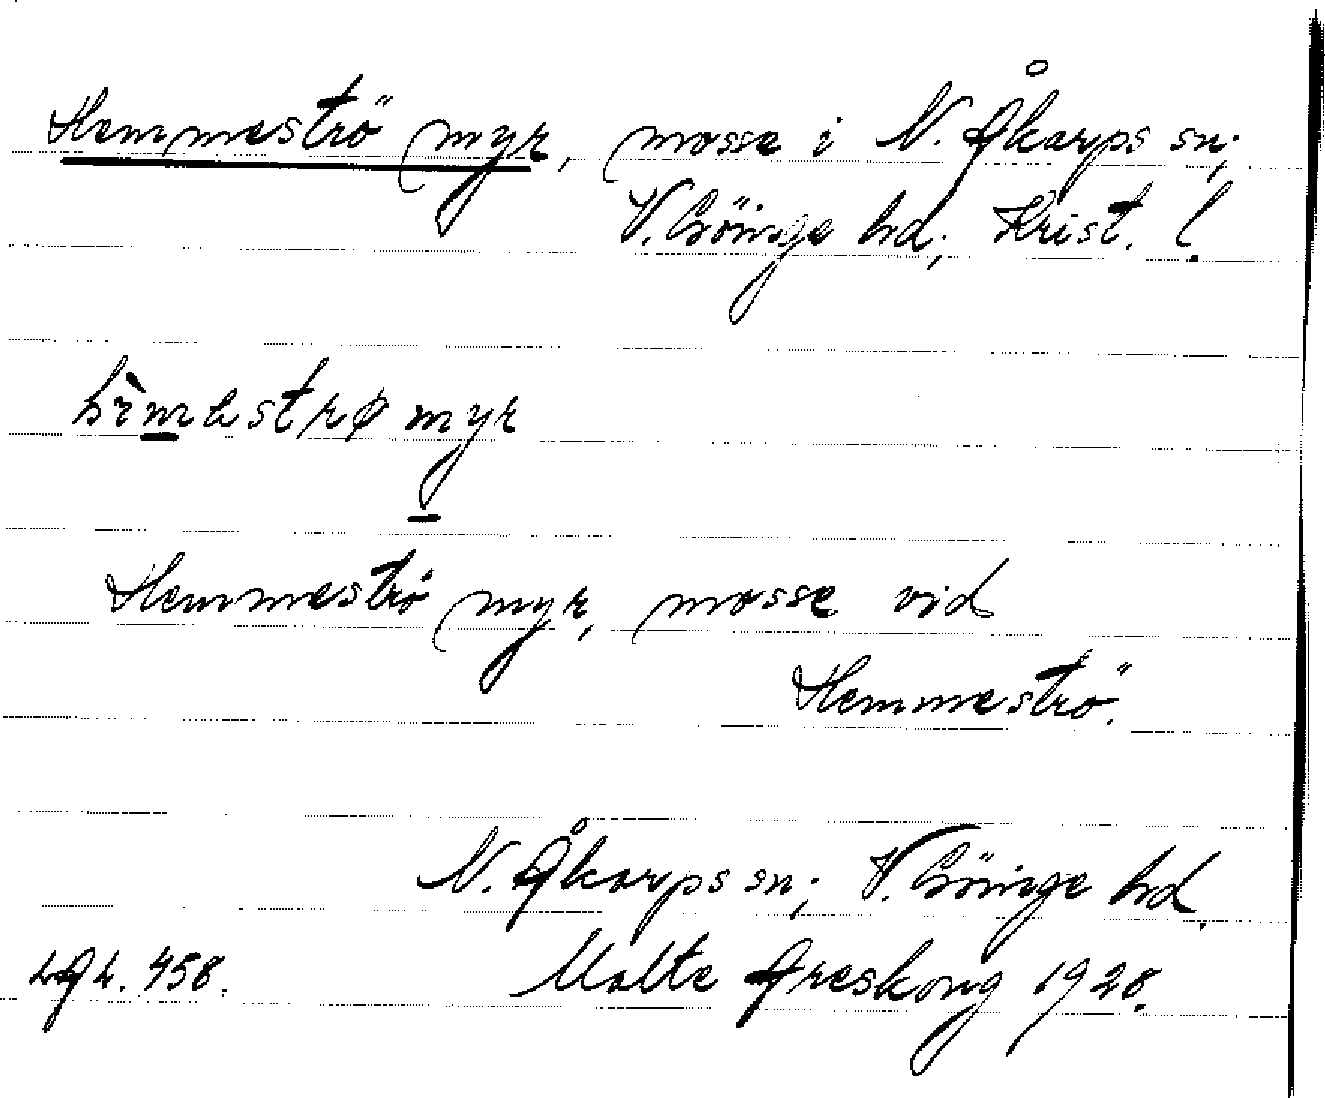 Hemmeströ myr, mosse i N. Åkarps sn;
V. Göinge hd; Krist. l.
Hemmeströ myr, mosse vid
Hemmeströ.
N. Åkarps sn; V. Göinge hd.
Malte Areskoug 1928.